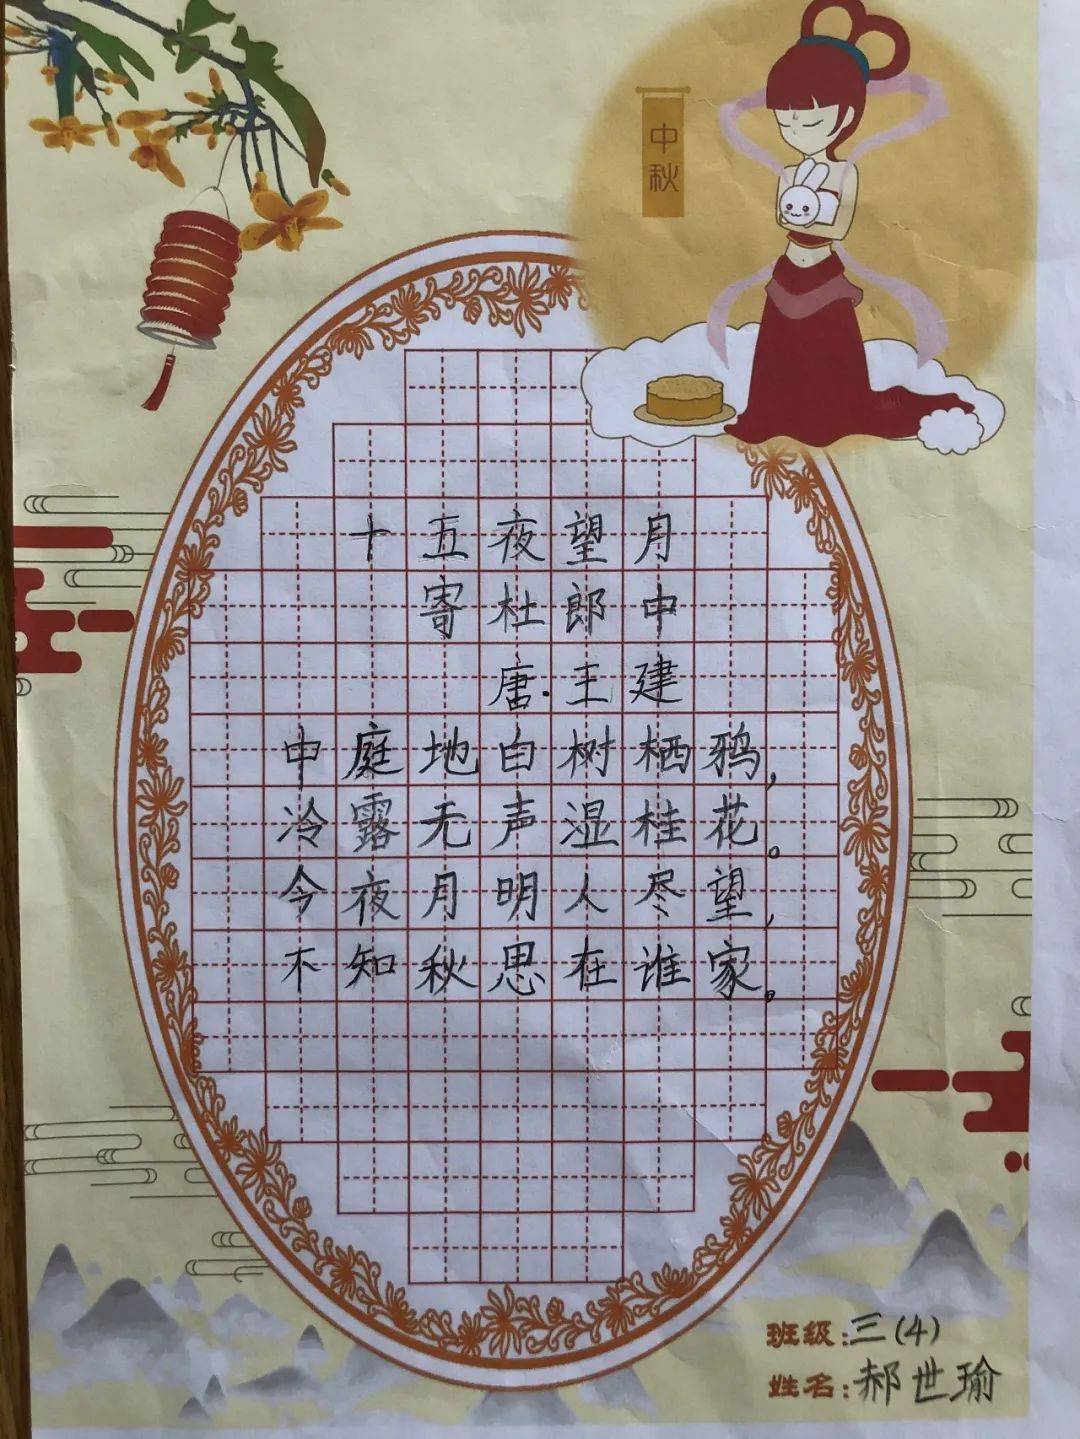 中秋
十五夜望月
寄杜郎中
唐.王建
中庭地白树栖鸦,
冷露无声湿桂花。
今夜月明人尽望,
不知秋思在谁家。
班级:三(4)
姓名:郝世瑜